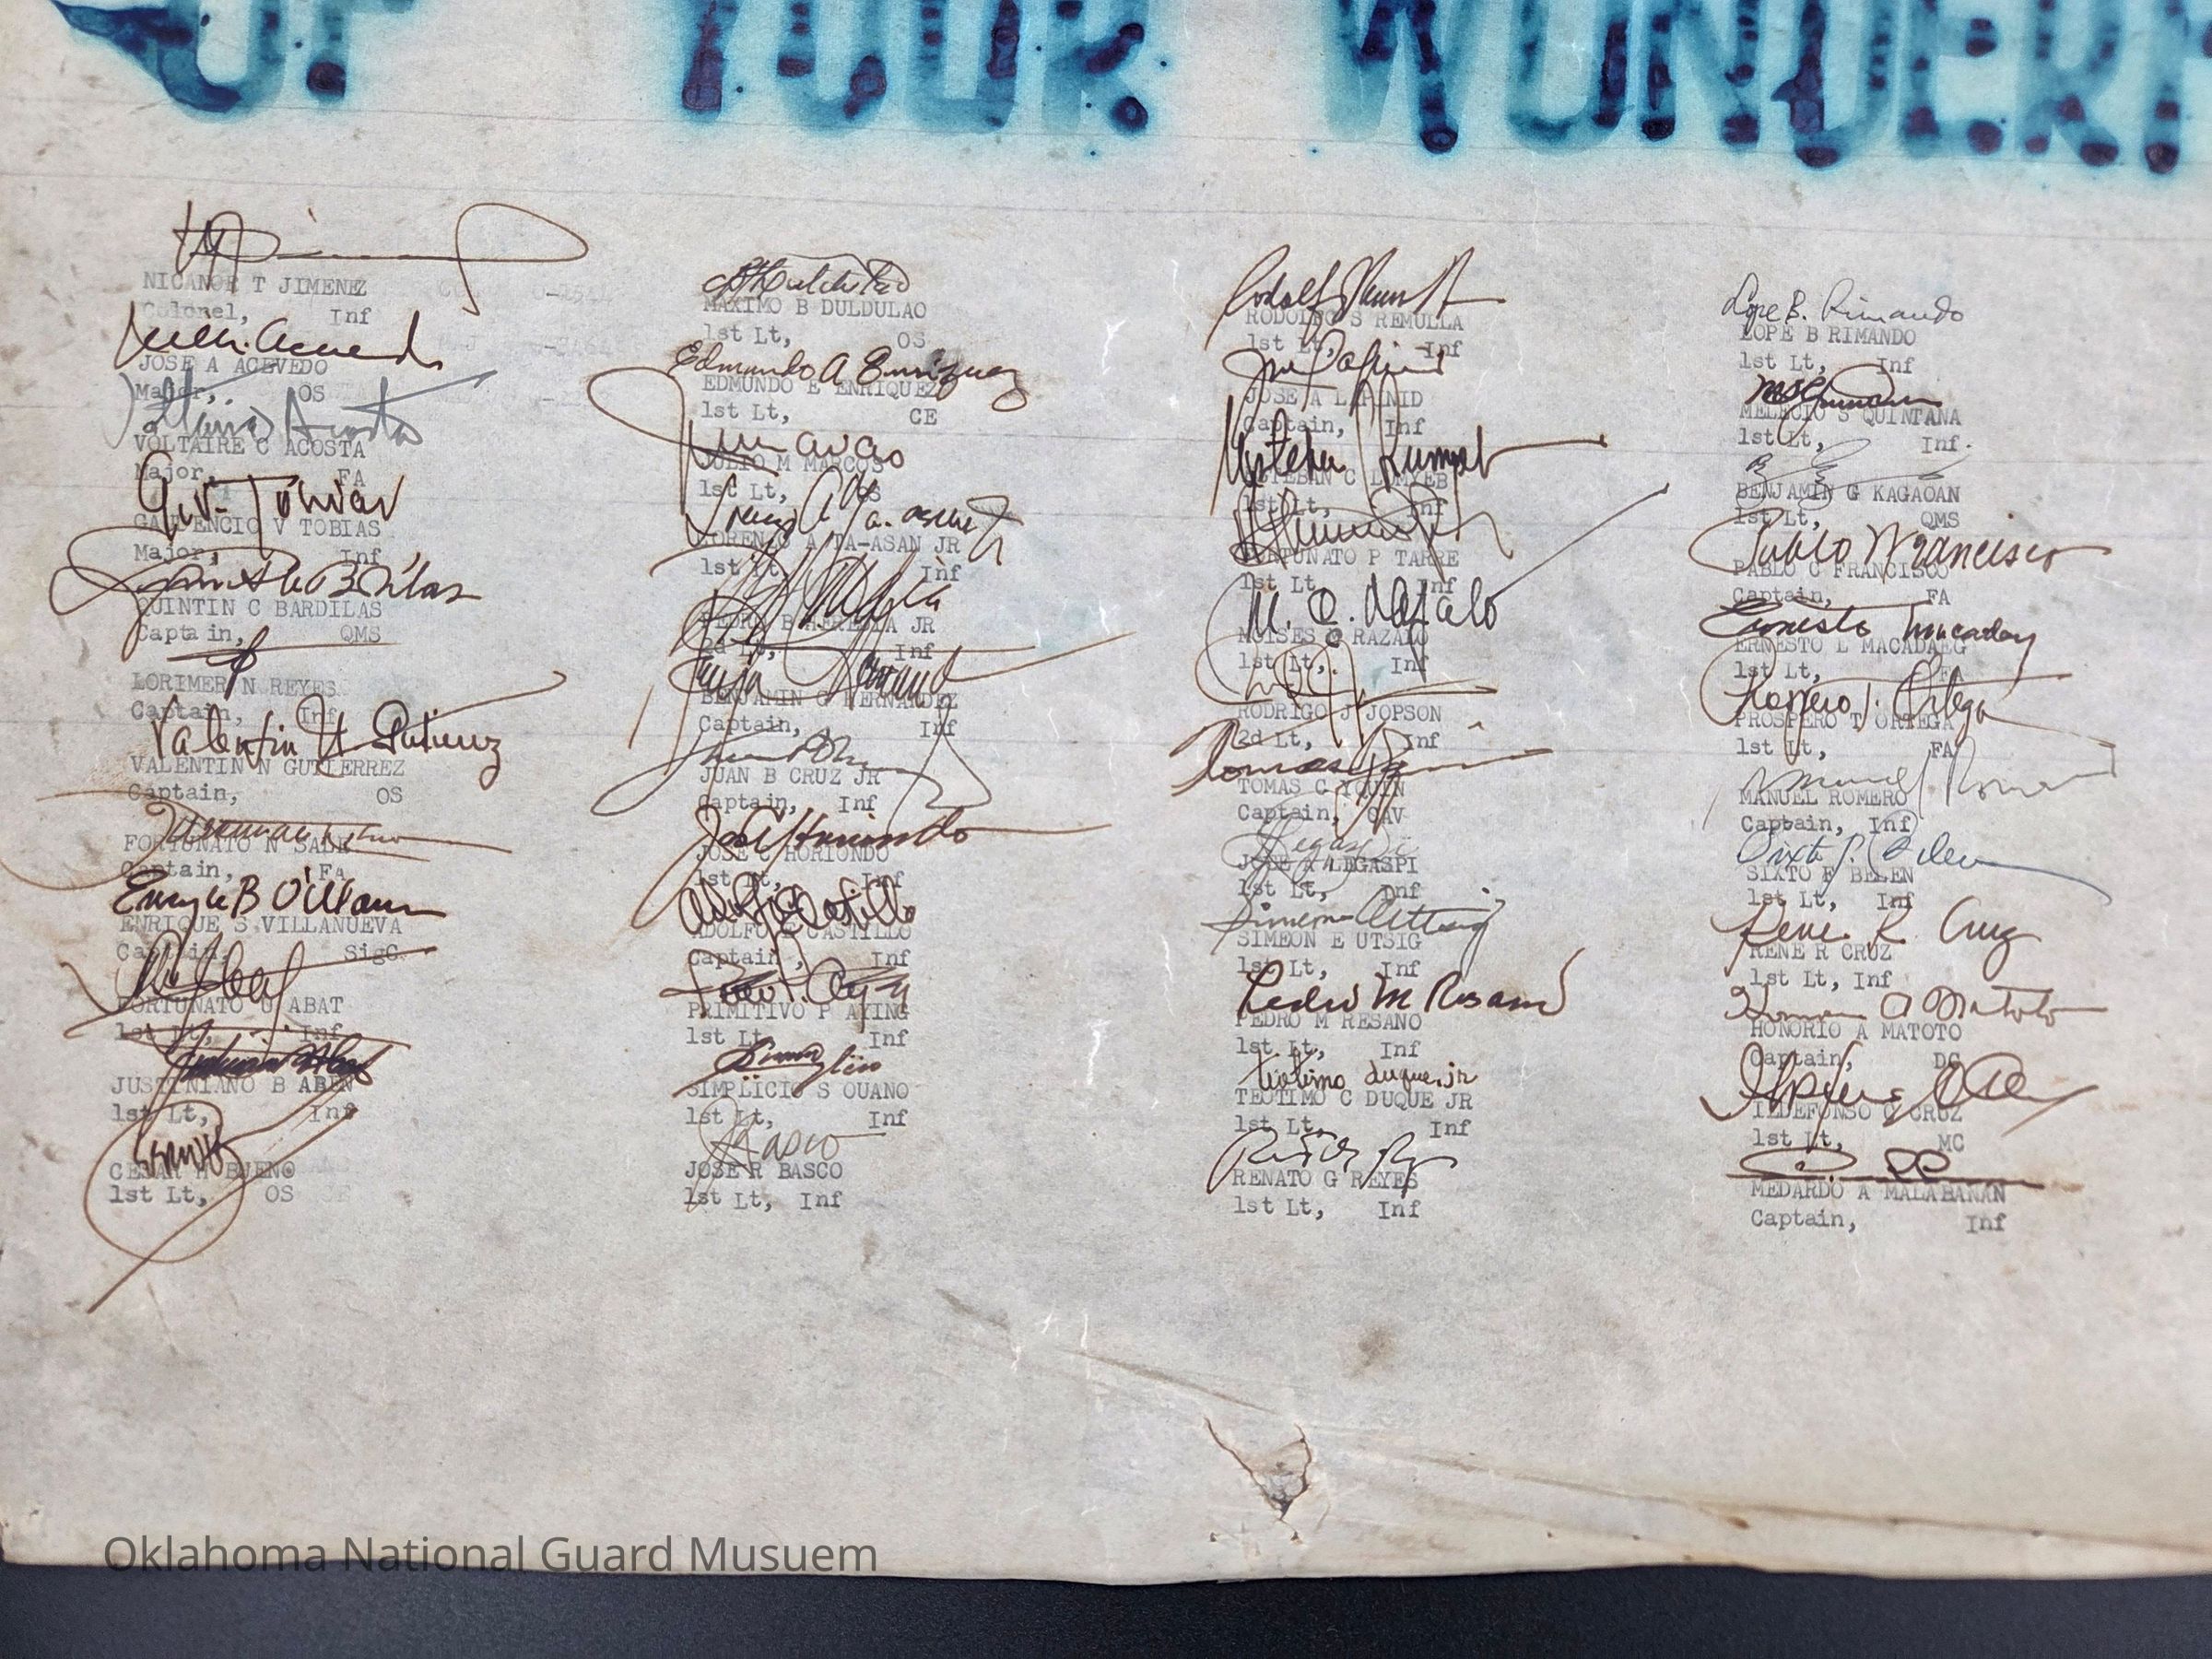 OF YOUR WONDERF
NICANOR T JIMENEZ
Colonel, Inf
JOSE A ACEVEDO
Major, OS
VOLTAIRE C ACOSTA
Major, FA
G. V. Tobias
GAUDENCIO V TOBIAS
Major, Inf
QUINTIN C BARDILAS
Captain, QMS
LORIMER N REYES
Captain, Inf
Valentin N Gutierrez
VALENTIN N GUTIERREZ
Captain, OS
FORTUNATO N SADE
Captain, FA
ENRIQUE S VILLANUEVA
Captain, SigC
FORTUNATO U ABAT
1st Lt, Inf
JUSTINIANO B ABEN
1st Lt, Inf
CESAR BUENO
1st Lt, OS
MAXIMO B DULDULAO
1st Lt, OS
Edmundo A Enriquez
EDMUNDO E ENRIQUEZ
1st Lt, CE
JULIO M MARCOS
1st Lt, OS
LORENZO A TA-ASAN JR
1st Lt, Inf
PEDRO B HEREDIA JR
2d Lt, Inf
BENJAMIN G HERNANDEZ
Captain, Inf
JUAN B CRUZ JR
Captain, Inf
JOSE C HORIONDO
1st Lt, Inf
ADOLFO CASTILLO
Captain, Inf
PRIMITIVO P AYING
1st Lt, Inf
SIMPLICIO S OUANO
1st Lt, Inf
JOSE R BASCO
1st Lt, Inf
RODOLFO S REMULLA
1st Lt, Inf
JOSE A LAPINID
Captain, Inf
ESTEBAN C LUMYEB
1st Lt, Inf
FORTUNATO P TARRE
1st Lt, Inf
M. Q. Razalo
MOISES Q RAZALO
1st Lt, Inf
RODRIGO J JOPSON
2d Lt, Inf
TOMAS C YQUIN
Captain, CAV
Legaspi
JOSE A LEGASPI
1st Lt, Inf
Simeon Uttsig
SIMEON E UTSIG
1st Lt, Inf
Pedro M Resano
PEDRO M RESANO
1st Lt, Inf
Teotimo duque, jr
TEOTIMO C DUQUE JR
1st Lt, Inf
RENATO G REYES
1st Lt, Inf
Lope B. Rimando
LOPE B RIMANDO
1st Lt, Inf
MELECIO S QUINTANA
1st Lt, Inf.
BENJAMIN G KAGAOAN
1st Lt, QMS
Pablo Francisco
PABLO C FRANCISCO
Captain, FA
Ernesto Macadaeg
ERNESTO L MACADAEG
1st Lt, FA
Prospero T. Ortega
PROSPERO T ORTEGA
1st Lt, FA
Manuel Romero
MANUEL ROMERO
Captain, Inf
Sixto P. Belen
SIXTO P BELEN
1st Lt, Inf
Rene R Cruz
RENE R CRUZ
1st Lt, Inf
HONORIO A MATOTO
Captain, DC
ILDEFONSO C CRUZ
1st Lt, MC
MEDARDO A MALABANAN
Captain, Inf
Oklahoma National Guard Musuem